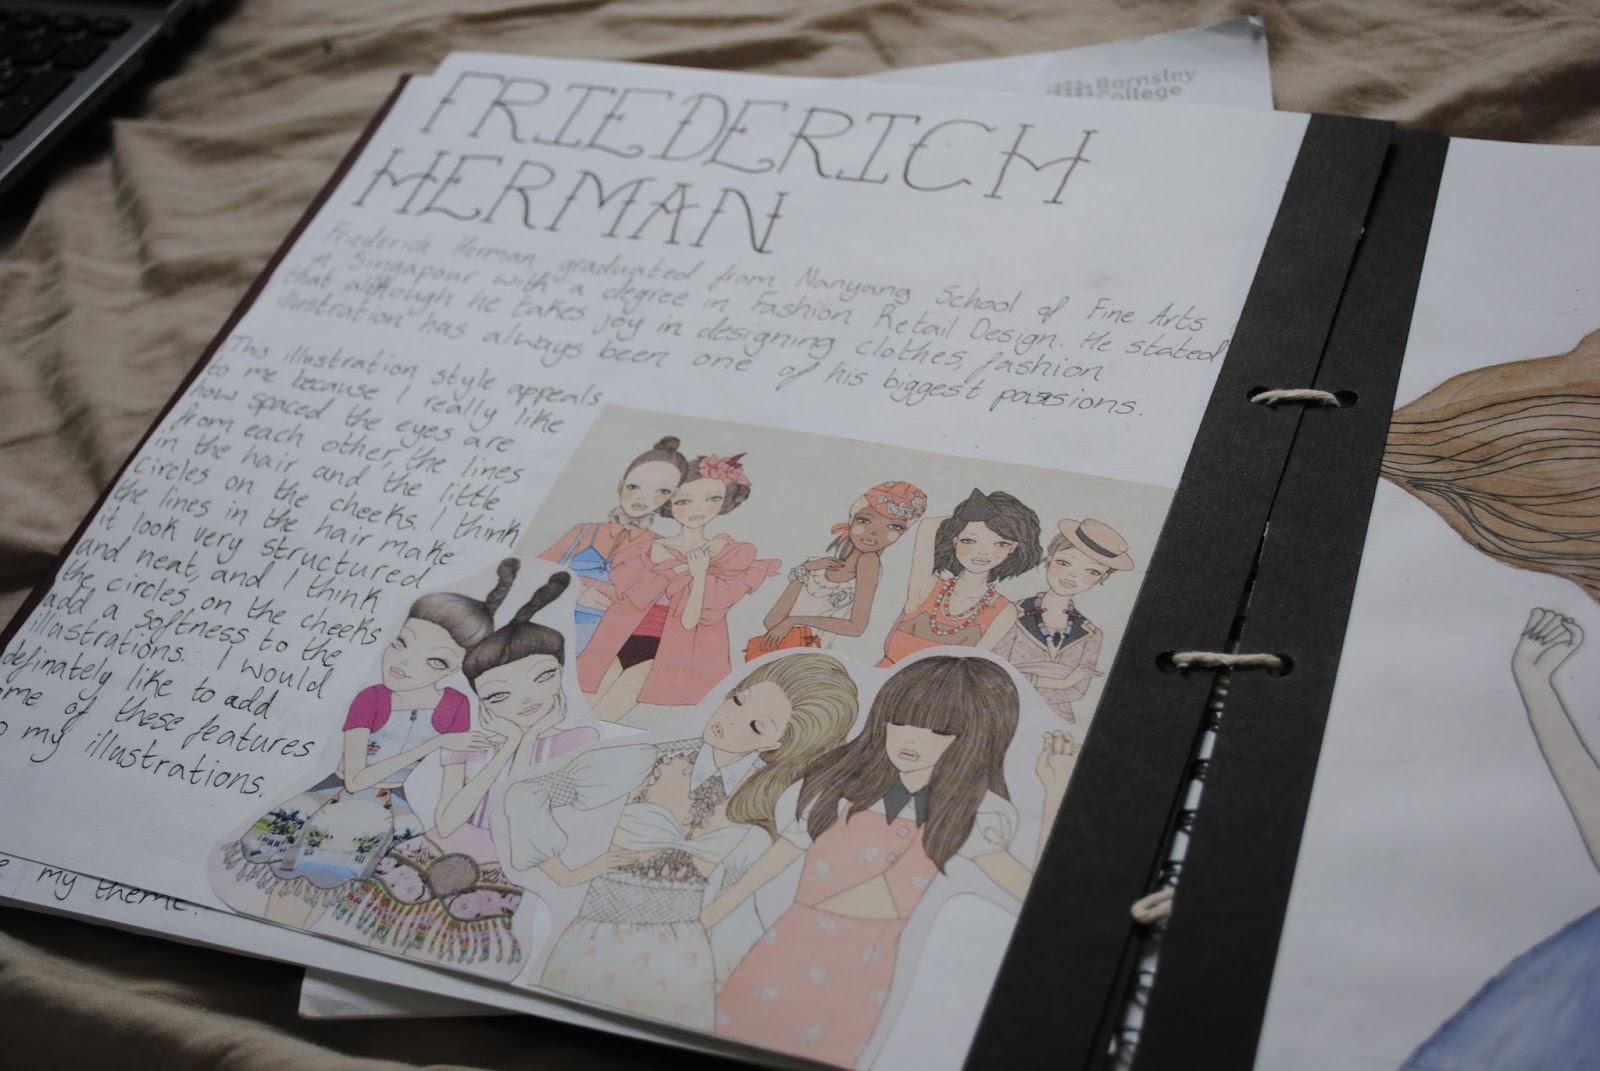 Barnsley
College
FRIEDERICH
HERMAN
Friederich Herman graduated from Nanyang School of Fine Arts
in Singapour with a degree in Fashion Retail Design. He stated
that although he takes joy in designing clothes, fashion
illustration has always been one of his biggest passions.
This illustration style appeals
to me because I really like
how spaced the eyes are
from each other, the lines
in the hair and the little
circles on the cheeks. I think
the lines in the hair make
it look very structured
and neat, and I think
the circles on the cheeks
add a softness to the
illustrations. I would
definately like to add
ome of these features
o my illustrations.
my theme.